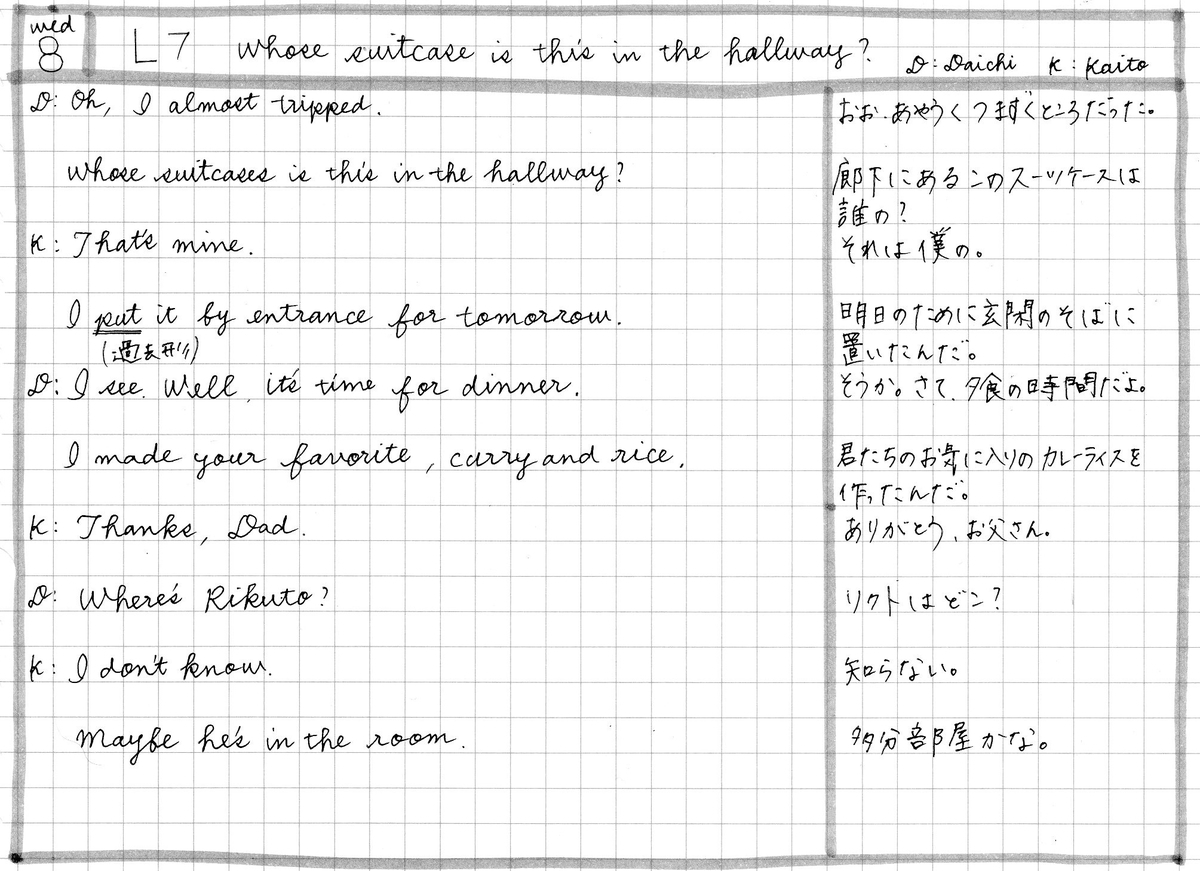 wed
8
L7 Whose suitcase is this in the hallway? D: Daichi K: Kaito
D: Oh, I almost tripped.
おお、あやうくつまずくところだった。
Whose suitcases is this in the hallway?
廊下にあるこのスーツケースは
誰の?
K: That's mine.
それは僕の。
I put it by entrance for tomorrow.
(過去形)
明日のために玄関のそばに
置いたんだ。
D: I see. Well, it's time for dinner.
そうか。さて、夕食の時間だよ。
I made your favorite, curry and rice.
君たちのお気に入りのカレーライスを
作ったんだ。
K: Thanks, Dad.
ありがとう、お父さん。
D: Where's Rikuto?
リクトはどこ?
K: I don't know.
知らない。
Maybe he's in the room.
多分部屋かな。